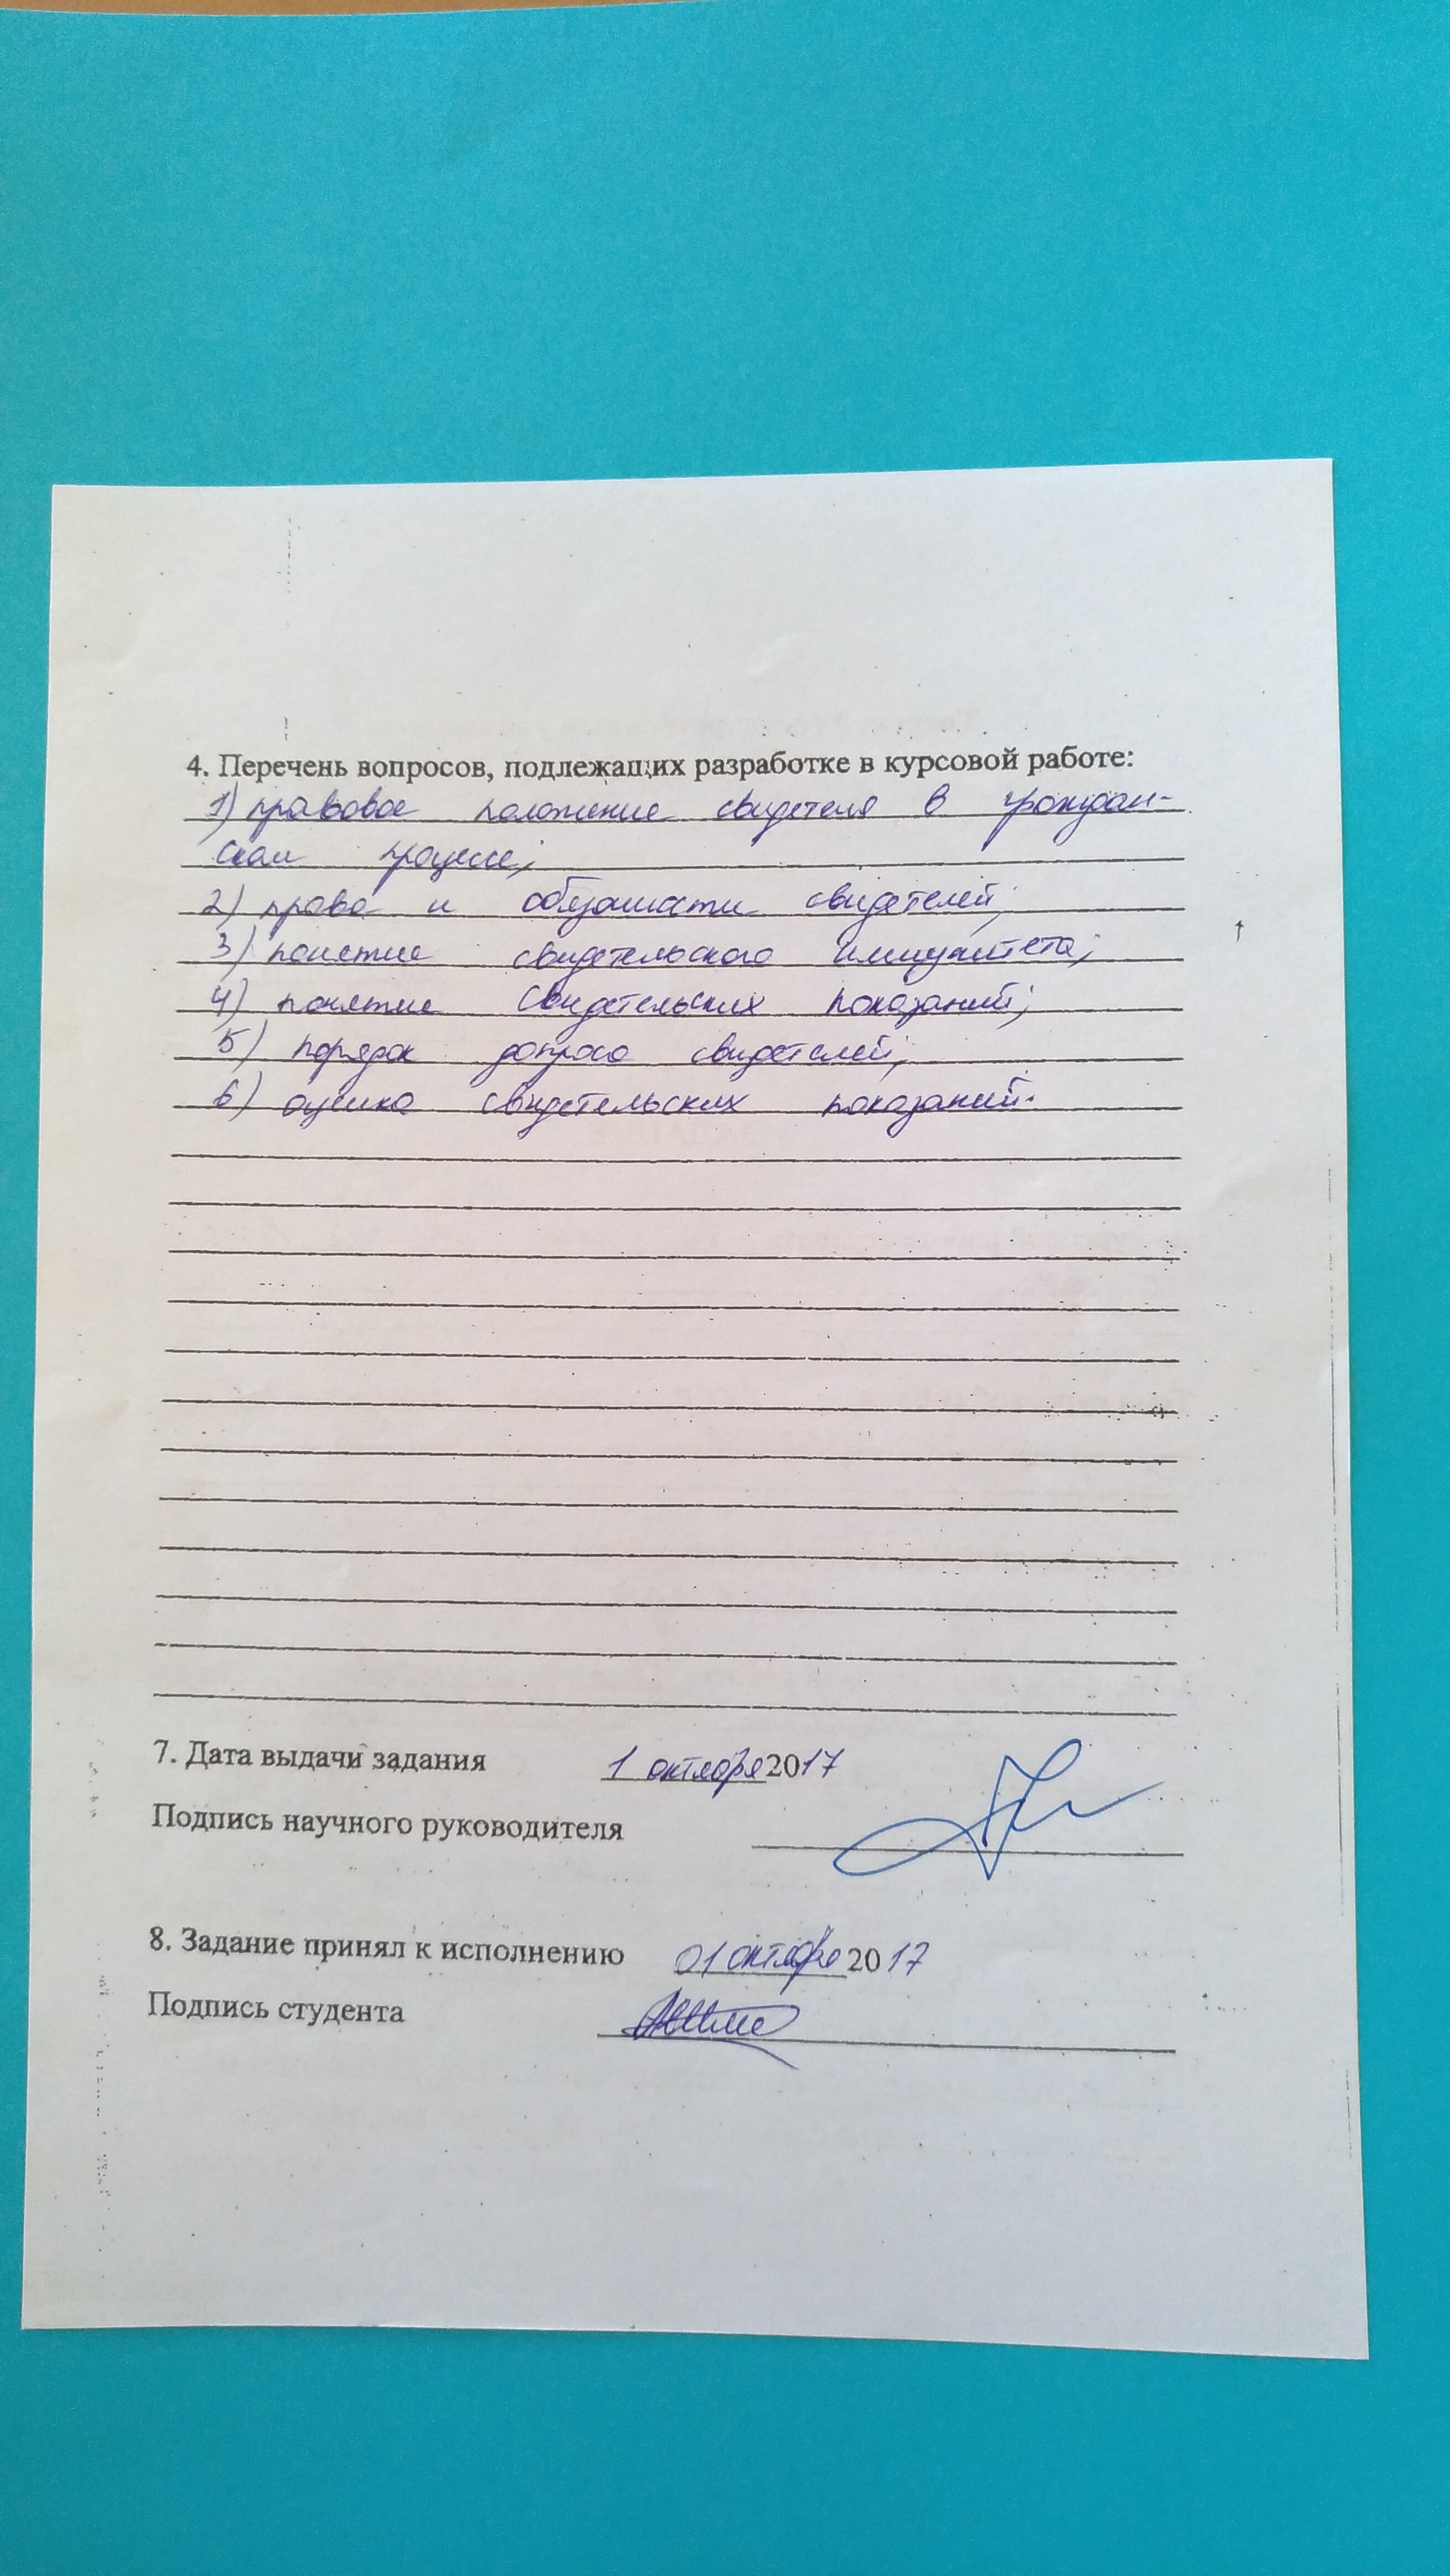 4. Перечень вопросов, подлежащих разработке в курсовой работе:
1) правовое положение свидетеля в граждан-
ском процессе;
2) права и обязаности свидетелей;
3) понятие свидетельского иммунитета;
4) понятие свидетельских показаний;
5) порядок допроса свидетелей;
6) оценка свидетельских показаний.
7. Дата выдачи задания 1 октября 2017
Подпись научного руководителя
8. Задание принял к исполнению 01 октября 2017
Подпись студента